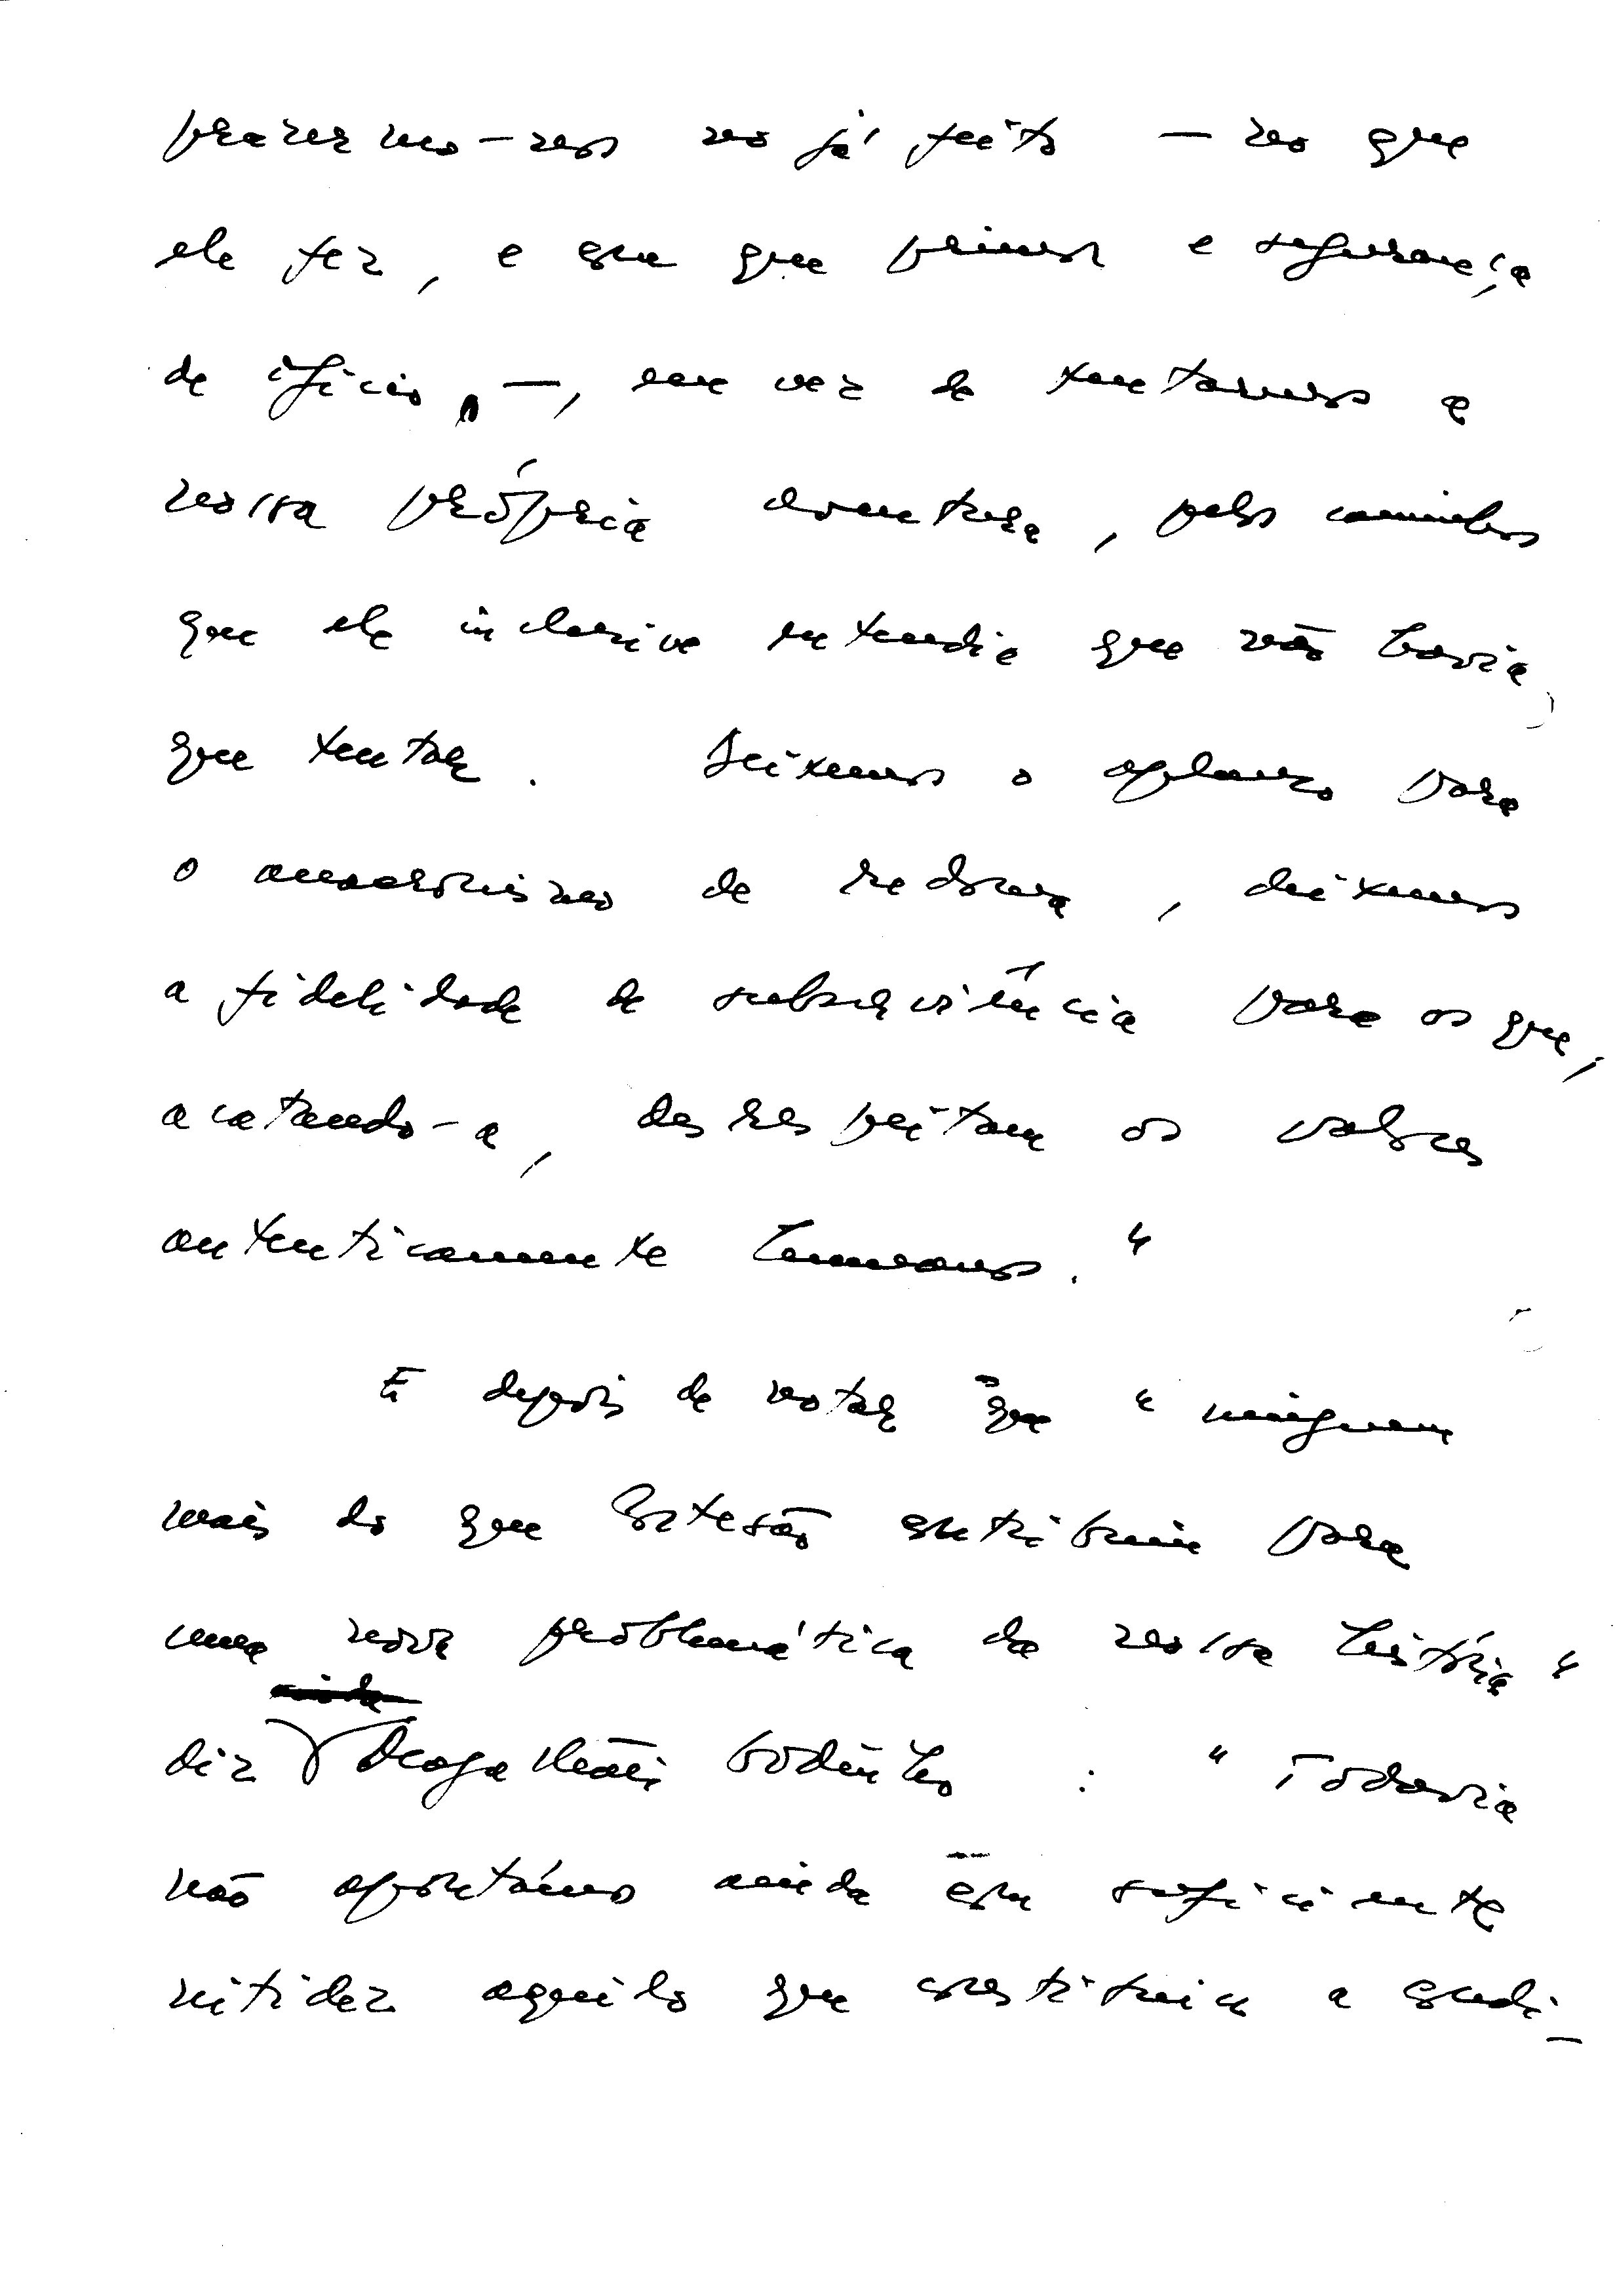 prazermo-nos no já feito — no que
ele fez, e com que primor e segurança
de ofício, —, em vez de tentarmos a
nossa própria aventura, pelos caminhos
que ele inclusive entendia que não havia
que tentar. Deixemos o aplauso para
o anacronismo de redoma, deixemos
a fidelidade de subserviência para os que,
acatando-a, desrespeitam os valores
autenticamente humanos."
E depois de notar que "ninguem
mais do que Cortesão contribuiu para
uma nova problemática da nossa história"
diz Magalhães Godinho : "Todavia
não apontámos ainda com suficiente
nitidez aquilo que constituiu a condi-